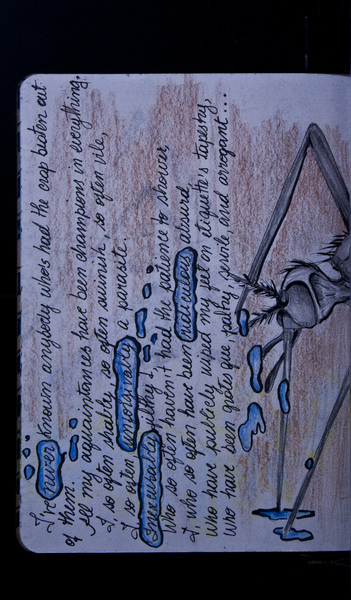 I've never known anybody who's had the crap beaten out
of them.
All my acquaintances have been champions in everything.
I, so often shabby, so often swinish, so often vile,
I, so often
a parasite,
filthy
Who so often haven't had the patience to shower,
I, who so often have been ridiculous, absurd
Who have publicly wiped my feet on etiquette's tapestry,
Who have been grotesque, paltry, servile, and arrogant...